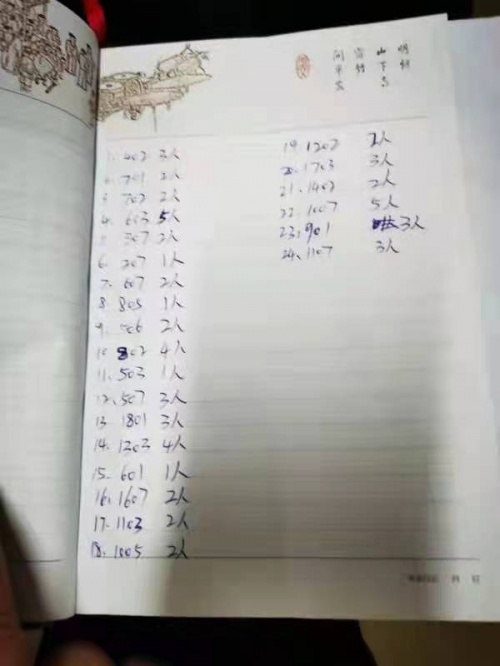 1. 402 3人
2. 701 2人
3 702 2人
4. 603 5人
5 307 2人
6. 207 1人
7. 607 2人
8. 805 1人
9. 506 2人
10 802 4人
11. 503 1人
12. 507 3人
13. 1801 3人
14. 1303 4人
15. 601 1人
16. 1607 2人
17. 1103 2人
18. 1005 2人
19. 1202 2人
20. 1703 3人
21. 1402 2人
22. 1007 5人
23. 901 3人
24. 1107 3人